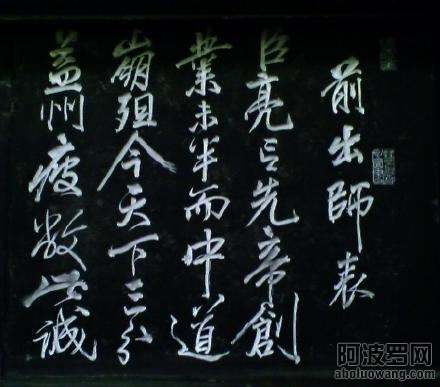 前出師表
臣亮言先帝創
業未半而中道
崩殂今天下三分
益州疲敝此誠
阿波罗网
aboluowang.com